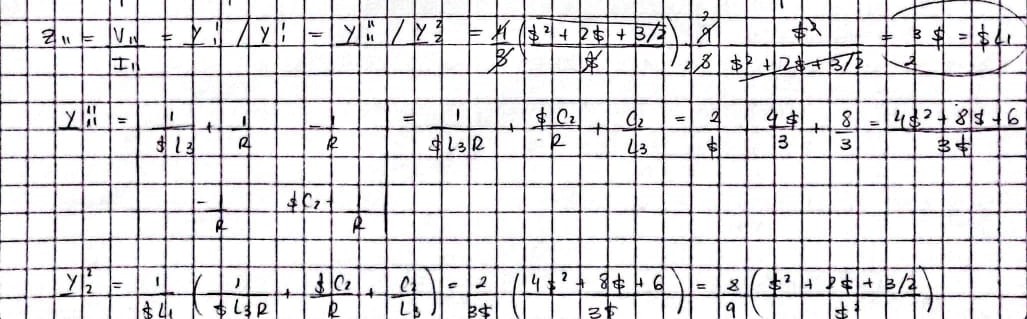 Z₁₁ = V₁₁/I₁₁ = Y¦¦ / Y¦¦ = Y¹¹₁₁ / Y²₂ = 4/3 ($² + 2$ + 3/2 / $) · 9/8 $² / $² + 2$ + 3/2 = 3/2 $ = $L₁
Y¹¹₁₁ = | 1/$L₃ + 1/R   -1/R | = 1/$L₃R + $C₂/R + C₂/L₃ = 2/$ 4$/3 + 8/3 = 4$² + 8$ + 6 / 3$
-1/R   $C₂ + 1/R |
Y²₂ = 1/$L₁ ( 1/$L₃R + $C₂/R + C₂/L₃ ) = 2/3$ ( 4$² + 8$ + 6 / 3$ ) = 8/9 ( $² + 2$ + 3/2 / $² )